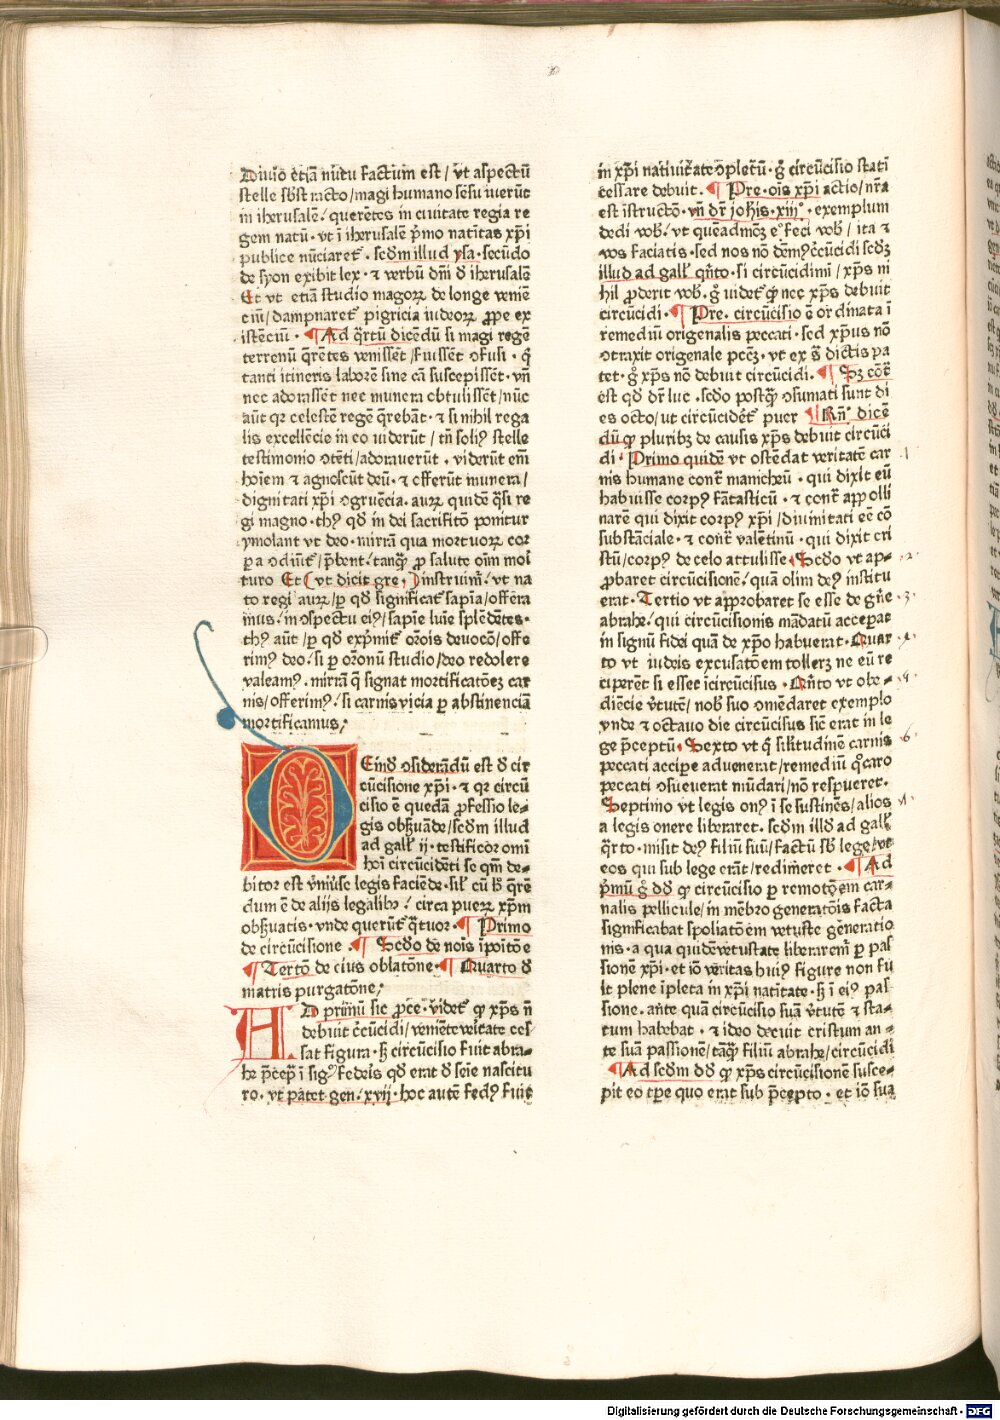 Diuiõ etiã nutu factum est / vt aspectũ
stelle sbstracto / magi humano sẽsu iuerũt
in iherusalẽ / querẽtes in ciuitate regia re
gem natũ · vt ĩ iherusalẽ pᵐo natiitas xp̃i
publice nũciaret᷑ · scd̃m illud ysa · secũdo
de syon exibit lex · ⁊ verbũ dñi đ iherusalẽ
Et vt etiã studio magoꝝ de longe veniẽ
ciũ / dampnaret᷑ pigricia iudeoꝝ ꝓpe ex
istẽciũ · ¶ Ad q̃rtũ dicẽdũ si magi regẽ
terrenũ q̃rẽtes venissẽt / fuissẽt ꝯfusi · q᷑
tanti itineris laborẽ sine cã suscepissẽt · vñ
nec adorassẽt nec munera obtulissẽt / nũc
aũt qꝛ celestẽ regẽ q̃rebãt · ⁊ si nihil rega
lis excellẽcie in eo viderũt / tñ soliꝰ stelle
testimonio ꝯtẽti / adorauerũt · viderũt em̃
hoĩem ⁊ agnoscũt deũ · ⁊ offerũt munera /
dignitati xp̃i ꝯgruẽcia · auꝝ quidẽ q̃si re
gi magno · thꝰ qđ in dei sacrifitõ ponitur
ymolant vt deo · mirrã qua mortuoꝝ cor
pa ꝯdiũt᷑ / p̃bent · tanqꝫ ꝓ salute oĩm moi
turo Et ( vt dicit gre · ) instruim᷑ · vt na
to regi auꝝ / ꝑ qđ significat᷑ sapĩa / offera
mus / in ꝯspectu eiꝰ / sapĩe luĩe splẽdẽtes ·
thꝰ aũt / ꝑ qđ exp̃mit᷑ or̃ois deuocõ / offe
rimꝰ deo / si ꝑ or̃onũ studio / deo redolere
valeamꝰ · mirrã q̃ signat mortificatõeꝫ car
nis / offerimꝰ / si carnis vicia ꝑ abstinenciã
mortificamus /
Einđ ꝯsiderãdũ est đ cir
cũcisione xp̃i · ⁊ qꝛ circũ
cisio ẽ quedã ꝓfessio le-
gis obs̃uãde / scd̃m illud
ad gall᷑ ij · testificor omĩ
hoĩ circũcidẽti se qm̃ de-
bitor est vniuse legis faciẽde · sil᷑ cũ b̃ q̃rẽ
dum ẽ de alijs legalibꝫ / circa pueꝝ xp̃m
obs̃uatis · vnde querũt᷑ q̃tuor · ¶ Primo
de circũcisione · ¶ Scđo de nois ĩpoitõe
¶ Tertõ de eius oblatõne · ¶ Quarto đ
matris purgatõne /
AD primũ sic ꝓce · videt᷑ qꝫ xp̃s ñ
debuit c̃cũcidi / veniẽte veitate ces
sat figura · s̃ circũcisio fuit abra-
he p̃cep ĩ sigᵒ / fedeis qđ erat đ seie nascitu
ro · vt patet gen · xvij · hoc autẽ fedꝰ fuit
in xp̃i natiuitate ꝯpletũ · g᷑ circũcisio stati
cessare debuit · ¶ Pre · ois xp̃i actio / nr̃a
est istructõ · vñ dr̃ johis · xiij · exemplum
dedi vob᷑ / vt quẽadmoꝫ eᵒ feci vob᷑ / ita ⁊
vos faciatis · sed nos nõ dẽmꝰ c̃cũcidi scdꝫ
illud ad gall᷑ qñto · si circũcidimĩ / xp̃s ni
hil ꝓderit vob᷑ · g᷑ videt᷑ qꝫ nec xp̃s debuit
circũcidi · ¶ Pre · circũcisio ẽ ordinata ĩ
remediũ origenalis peccati · sed xp̃us nõ
ꝯtraxit origenale pccꝫ · vt ex s̃ dictis pa
tet · g᷑ xp̃s nõ debuit circũcidi · ¶ Sꝫ cõt᷑
est qđ dr̃ luc · scđo postqꝫ ꝯsumati sunt di
es octo / ut circũcidẽt᷑ puer ¶ Rñ · dicẽ
dũ qꝫ pluribꝫ de causis xp̃s debuit circũci
di · Primo quidẽ vt ostẽdat veritatẽ car · 1 ·
nis humane cont᷑ manicheũ · qui dixit eũ
habuisse corpꝰ fãtasticũ · ⁊ cont᷑ appolli
narẽ qui dixit corpꝰ xp̃i / diuinitati eẽ cõ
substãciale · ⁊ cont᷑ valẽtinũ · qui dixit cri
stũ / corpꝰ de celo attulisse · Scđo vt ap- · 2 ·
ꝓbaret circũcisionẽ / quã olim deꝰ institu
erat · Tertio vt approbaret se esse de gñe · 3 ·
abrahe / qui circũcisionis mãdatũ acceperat
in signũ fidei quã de xp̃o habuerat · Quar · 4 ·
to vt iudeis excusatõem tolleꝝ ne eũ re
ciperẽt si esset ĩcircũcisus · Qñto vt obe- · 5 ·
diẽcie v̓tutẽ / nob᷑ suo ꝯmẽdaret exemplo
vnde ⁊ octauo die circũcisus sic̃ erat in le
ge p̃ceptũ · Sexto vt q᷑ sil̃itudinẽ carnis · 6 ·
peccati accipe aduenerat / remediũ q᷑ caro
peccati ꝯsueuerat mũdari / nõ respueret ·
Septimo vt legis onꝰ ĩ se sustinẽs / alios · 7 ·
a legis onere liberaret · scd̃m illđ ad gall᷑
q̃rto · misit deꝰ filiũ suũ / factũ sb̃ lege / vt
eos qui sub lege erãt / redim̃eret · ¶ Ad
p̃mũ g᷑ dđ qꝫ circũcisio ꝑ remotõem car-
nalis pellicule / in mẽbro generatõis facta
significabat spoliatõem vetuste generatio
nis · a qua quidẽ vetustate liberarem᷑ ꝑ pas
sionẽ xp̃i · et iõ veritas huiꝰ figure non fu
it plene ĩpleta in xp̃i natitate · s̃ ĩ eiꝰ pas
sione · ante quã circũcisio suã v̓tutẽ ⁊ sta-
tum habebat · ⁊ ideo decuit cristum an-
te suã passionẽ / tãqꝫ filiũ abrahe / circũcidi
¶ Ad scd̃m dđ qꝫ xp̃s circũcisionẽ susce-
pit eo tp̃e quo erat sub p̃cepto · et iõ sua
Digitalisierung gefördert durch die Deutsche Forschungsgemeinschaft - DFG